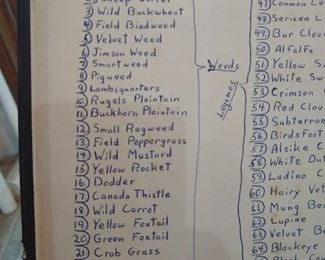 3 Wild Buckwheat
4 Field Bindweed
5 Velvet Weed
6 Jimson Weed
7 Smartweed
8 Pigweed
9 Lambsquarters
10 Rugels Plaintain
11 Buckhorn Plaintain
12 Small Ragweed
13 Field Peppergrass
14 Wild Mustard
15 Yellow Rocket
16 Dodder
17 Canada Thistle
18 Wild Carrot
19 Yellow Foxtail
20 Green Foxtail
21 Crab Grass
Weeds
Legumes
47 Common Le
48 Sericea L
49 Bur Clov
50 Alfalfa
51 Yellow Su
52 White Sw
53 Crimson
54 Red Clov
55 Subterran
56 Birdsfoot
57 Alsike C
58 White Du
59 Ladino C
60 Hairy Vet
61 Mung Bea
62 Lupine
63 Velvet B
64 Blackeye